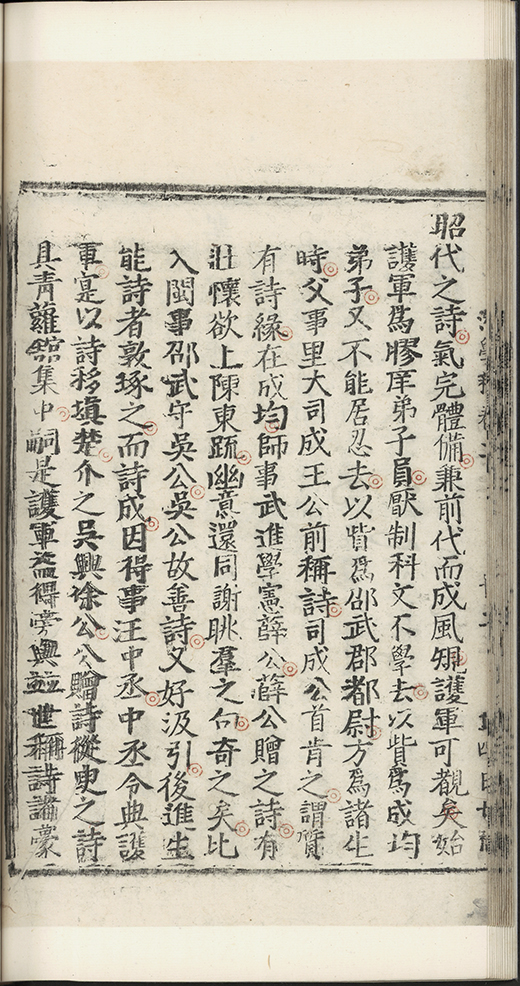 昭代之詩氣完體備兼前代而成風矧護軍可觀矣始
護軍爲膠庠弟子員厭制科文不學去以貲爲成均
弟子又不能居忍去以貲爲邵武郡都尉方爲諸生
時父事里大司成王公前稱詩司成公首肯之謂質
有詩緣在成均師事武進學憲薛公薛公贈之詩有
壯懷欲上陳東疏幽意還同謝眺羣之句奇之矣比
入閩事邵武守吳公吳公故善詩又好汲引後進生
能詩者敦琢之而詩成因得事汪中丞中丞令典護
軍寔以詩移塡楚介之吳興徐公公贈詩從臾之詩
具青蘿館集中嗣是護軍益得旁與並世稱詩諸豪